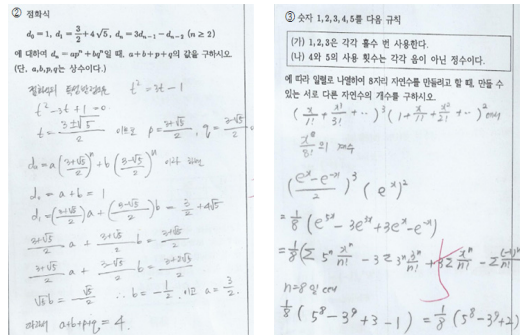 ② 점화식
d₀ = 1, d₁ = 3/2 + 4√5, dₙ = 3dₙ₋₁ − dₙ₋₂ (n ≥ 2)
에 대하여 dₙ = apⁿ + bqⁿ일 때, a+b+p+q의 값을 구하시오.
(단, a,b,p,q는 상수이다.)
t² = 3t − 1
t² − 3t + 1 = 0
t = (3±√5)/2 이므로 p = (3+√5)/2, q = (3−√5)/2
dₙ = a((3+√5)/2)ⁿ + b((3−√5)/2)ⁿ 이라 하면
d₀ = a+b = 1
d₁ = ((3+√5)/2)a + ((3−√5)/2)b = 3/2 + 4√5
(3+√5)/2 a + (3+√5)/2 b = (3+√5)/2
∴ b = −1/2, 이고 a = 3/2
따라서 a+b+p+q = 4.
③ 숫자 1,2,3,4,5를 다음 규칙
(가) 1,2,3은 각각 홀수 번 사용한다.
(나) 4와 5의 사용 횟수는 각각 음이 아닌 정수이다.
에 따라 일렬로 나열하여 8자리 자연수를 만들려고 할 때, 만들 수
있는 서로 다른 자연수의 개수를 구하시오.
(x/1! + x³/3! + ⋯)³ (1 + x/1! + x²/2! + ⋯)² 에서
x⁸/8! 의 계수
((eˣ − e⁻ˣ)/2)³ (eˣ)²
= 1/8 (e⁵ˣ − 3e³ˣ + 3eˣ − e⁻ˣ)
= 1/8 (Σ 5ⁿ xⁿ/n! − 3Σ 3ⁿ xⁿ/n! + 3Σ xⁿ/n! − Σ
n=8 일 때
1/8 (5⁸ − 3⁹ + 3 − 1) = 1/8 (5⁸ − 3⁹ + 2)